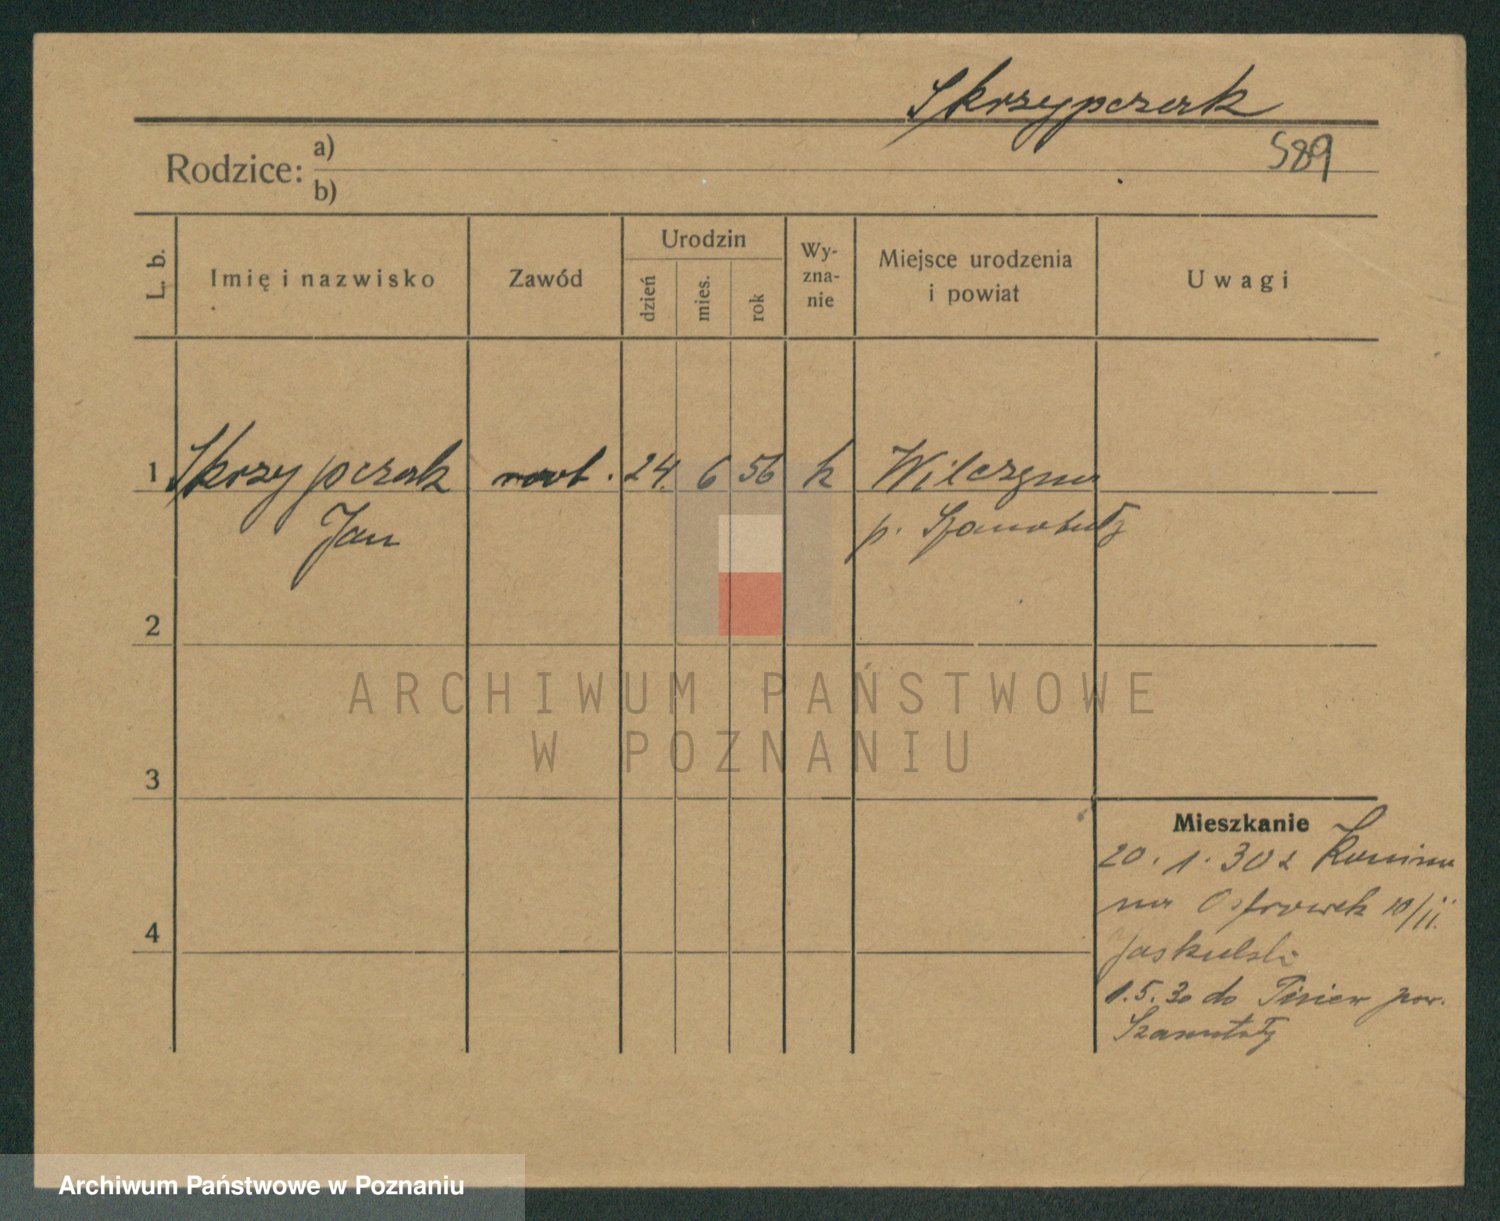 Skrzypczak
589
Rodzice: a)
b)
L. b.
Imię i nazwisko
Zawód
Urodzin
dzień
mies.
rok
Wy-
zna-
nie
Miejsce urodzenia
i powiat
Uwagi
1 Skrzypczak robt. 24. 6 56 k Wilczyna
Jan p. Szamotuły
2
3
4
Mieszkanie
20. 1. 30 z
na Ostrówek 10/II.
Jaskulski
1.5.30 do pow.
Szamotuły
ARCHIWUM PAŃSTWOWE
W POZNANIU
Archiwum Państwowe w Poznaniu